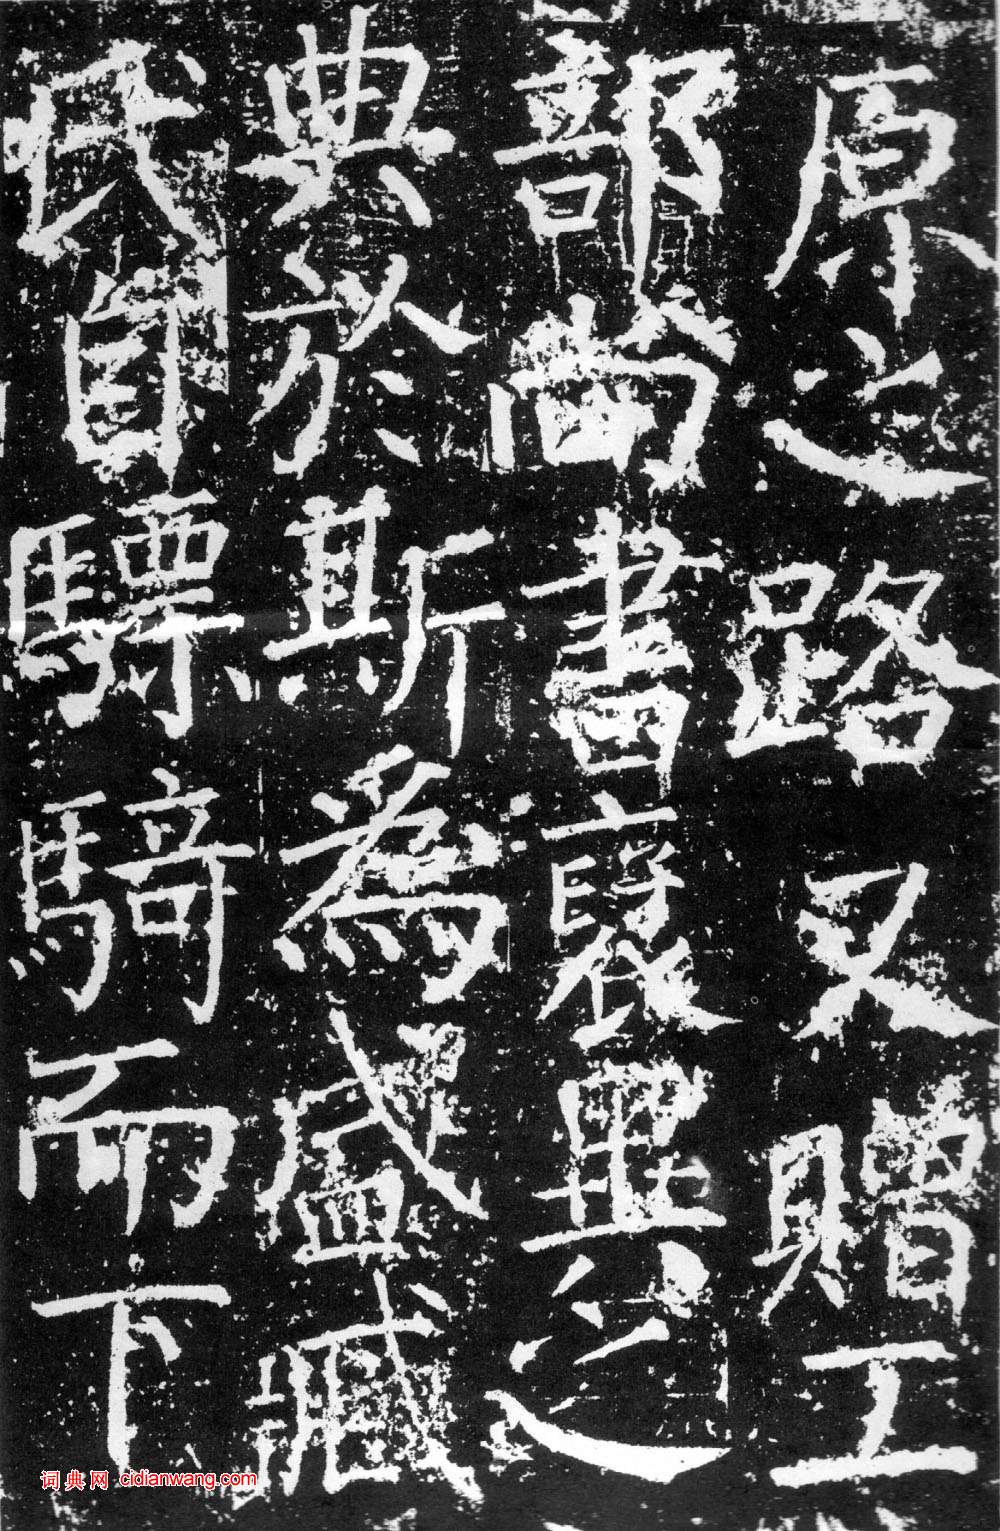 原之路又贈工
部尚書褒之
典於斯為盛臧
氏自驃騎而下
词典网 cidianwang.com